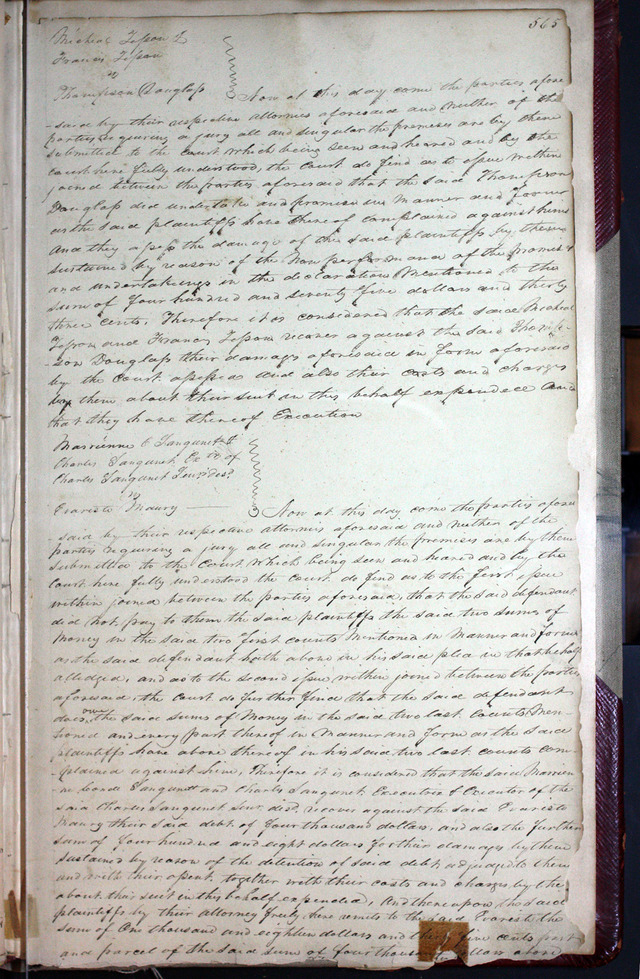 565
Micheal Tesson &
Francis Tesson
vs
Thompson Douglass Now at this day come the parties afore
-said by their respective attornies aforesaid and neither of the
parties requiring a jury all and singular the premises are by them
submitted to the Court which being seen and heared and by the
court here fully understood, the court do find as to issue within
joined between the parties aforesaid that the said Thompson
Douglass did undertake and promise in manner and form
as the said plaintiffs have thereof complained against him
And they assess the damage of the said plaintiffs by them
sustained by reason of the Non performance of the promises
and undertakings in the declaration Mentioned to the
sum of four hundred and seventy five dollars and thirty
three cents. Therefore it is considered that the said Micheal
Tesson and Francis Tesson recover against the said Thomp-
-son Douglass their damages aforesaid in form aforesaid
by the Court assessed and also their costs and charges
by them about their suit in this behalf expended and
that they have thereof Execution
Marrienne C Sanguinett &
Charles Sanguinet Exrs of
Charles Sanguinet Senr Decd
vs
Evariste Maury Now at this day come the parties afore
-said by their respective attornies aforesaid and neither of the
parties requiring a jury all and singular the premises are by them
submitted to the Court, Which being seen and heared and by the
Court here fully understood the court do find as to the first issue
within joined between the parties aforesaid, that the said defendant
did not pay to them the said plaintiffs the said two sums of
Money in the said two first counts Mentioned in Manner and form
as the said defendant hath above in his said plea in that behalf
alledged, and as to the second issue within joined between the parties
aforesaid, the Court do further find that the said defendant
does owe the said sums of Money in the said two last Counts Men-
tioned and every part thereof in Manner and form as the said
plaintiffs have above thereof in his said two last counts com-
-plained against him, Therefore it is considered that the said Marrien-
ne Sanguinett and Charles Sanguinet Executrix & Executor of the
said Charles Sanguinet Senr decd. recover against the said Evariste
Maury their said debt of four thousand dollars, and also the further
sum of four hundred and eight dollars for their damages by them
sustained by reason of the detention of said debt adjudged to them
and with their assent, together with their costs and charges by them
about their suit in this behalf expended, And thereupon the said
plaintiffs by their attorney freely here remits to the said Evariste the
sum of One thousand and eighteen dollars and thirty five cents part
and parcel of the said sum of four thousand dollars above